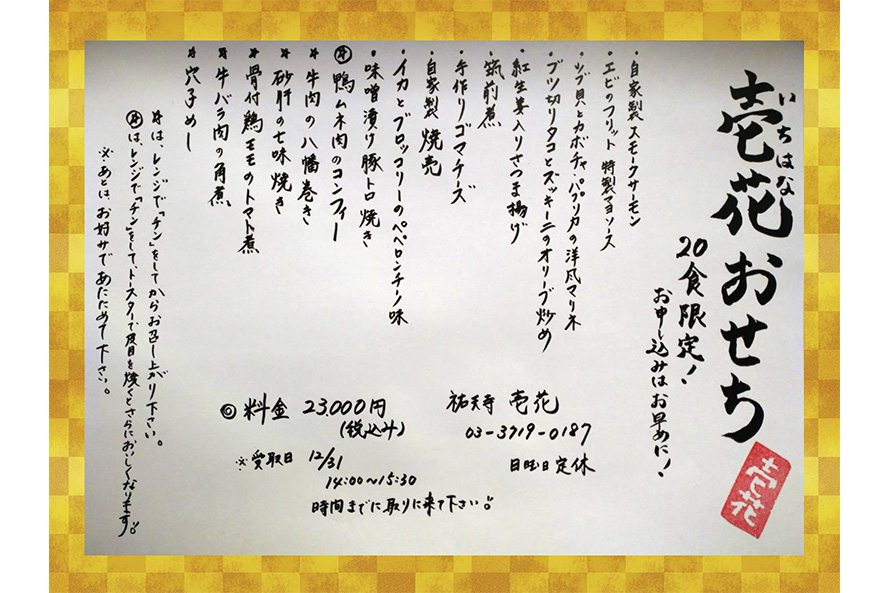 壱花おせち
いちはな
20食限定!
お申し込みはお早めに!
壱花
・自家製スモークサーモン
・エビのフリット 特製マヨソース
・ツブ貝とカボチャ・パプリカの洋風マリネ
・ブツ切りタコとズッキーニのオリーブ炒め
・紅生姜入りさつま揚げ
・筑前煮
・手作りゴマチーズ
・自家製焼売
・イカとブロッコリーのペペロンチーノ味
・味噌漬け豚トロ焼き
鴨ムネ肉のコンフィー
牛肉の八幡巻き
砂肝の七味焼き
骨付鶏モモのトマト煮
牛バラ肉の角煮
穴子めし
は、レンジで「チン」をしてからお召し上がり下さい。
は、レンジで「チン」をして、トースターで皮目を焼くとさらにおいしくなります。
※あとは、お好みであたためて下さい。
◎料金 23.000円
(税込み)
※受取日 12/31
14:00~15:30
時間までに取りに来て下さい。
祐天寺 壱花
03-3719-0187
日曜日定休